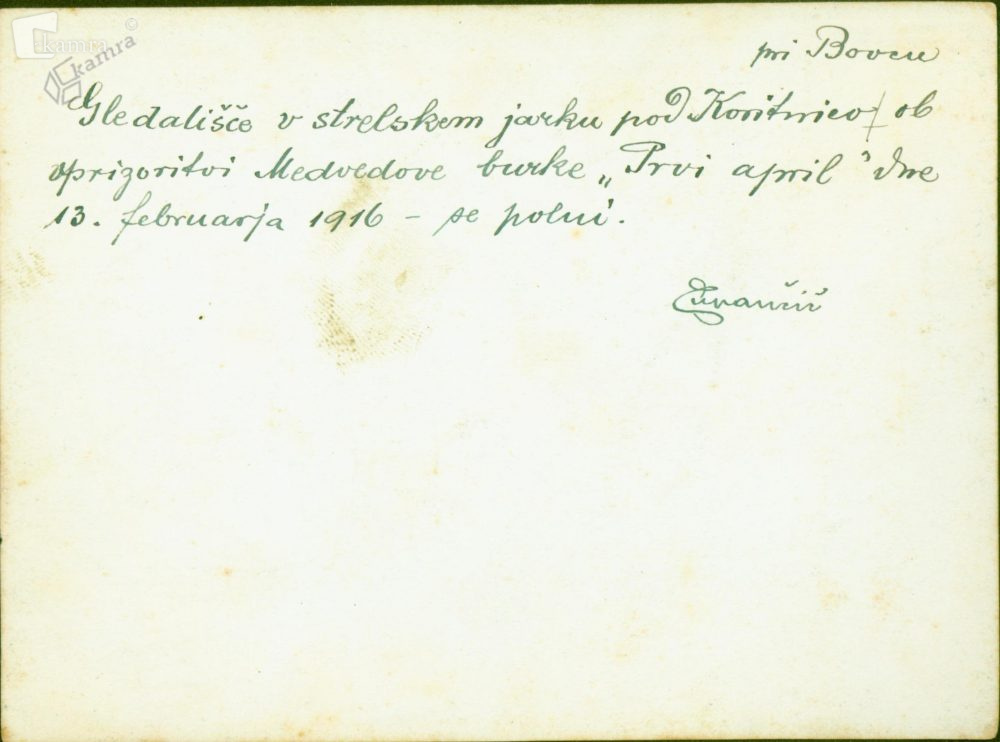 ekamra
kamra ©
pri Bovcu
Gledališče v strelskem jarku pod Koritnico ob
vprizoritvi Medvedove burke „Prvi april" dne
13. februarja 1916 - se polni.